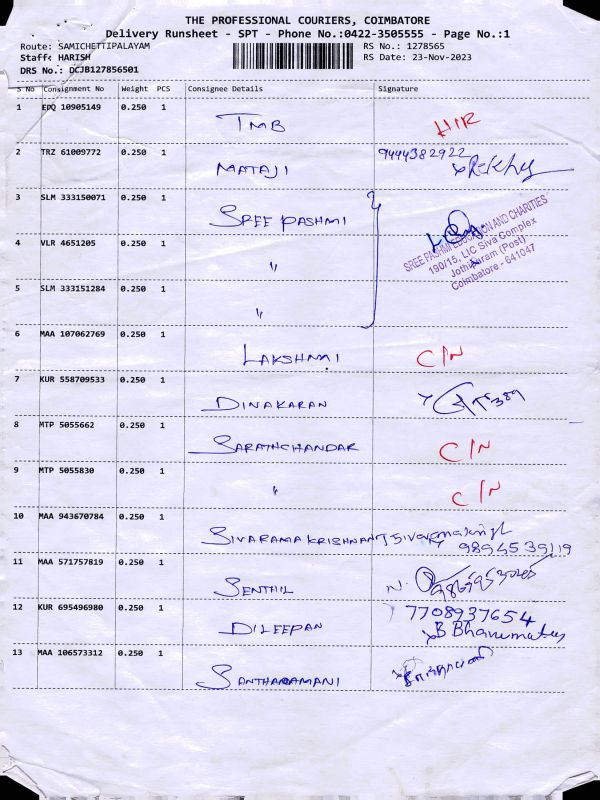 THE PROFESSIONAL COURIERS, COIMBATORE
Delivery Runsheet - SPT - Phone No.:0422-3505555 - Page No.:1
Route: SAMICHETTIPALAYAM RS No.: 1278565
Staff: HARISH RS Date: 23-Nov-2023
DRS No.: DCJB127856501
S No Consignment No Weight PCS Consignee Details Signature
1 EPQ 10905149 0.250 1 TMB H/R
2 TRZ 61009772 0.250 1 MATAJI 9444382922
3 SLM 333150071 0.250 1 SREE PASHMI
SREE PASHMI EDUCATION AND CHARITIES
190/15, LIC Siva Complex
Jothipuram (Post)
Coimbatore - 641047
4 VLR 4651205 0.250 1 "
5 SLM 333151284 0.250 1 "
6 MAA 107062769 0.250 1 LAKSHMI C/N
7 KUR 558709533 0.250 1 DINAKARAN
8 MTP 5055662 0.250 1 SARATHCHANDAR C/N
9 MTP 5055830 0.250 1 " C/N
10 MAA 943670784 0.250 1 SIVARAMA KRISHNAN
9894539119
11 MAA 571757819 0.250 1 SENTHIL N.
12 KUR 695496980 0.250 1 DILEEPAN 7708937654
B Bhanumathy
13 MAA 106573312 0.250 1 SANTHARAMANI